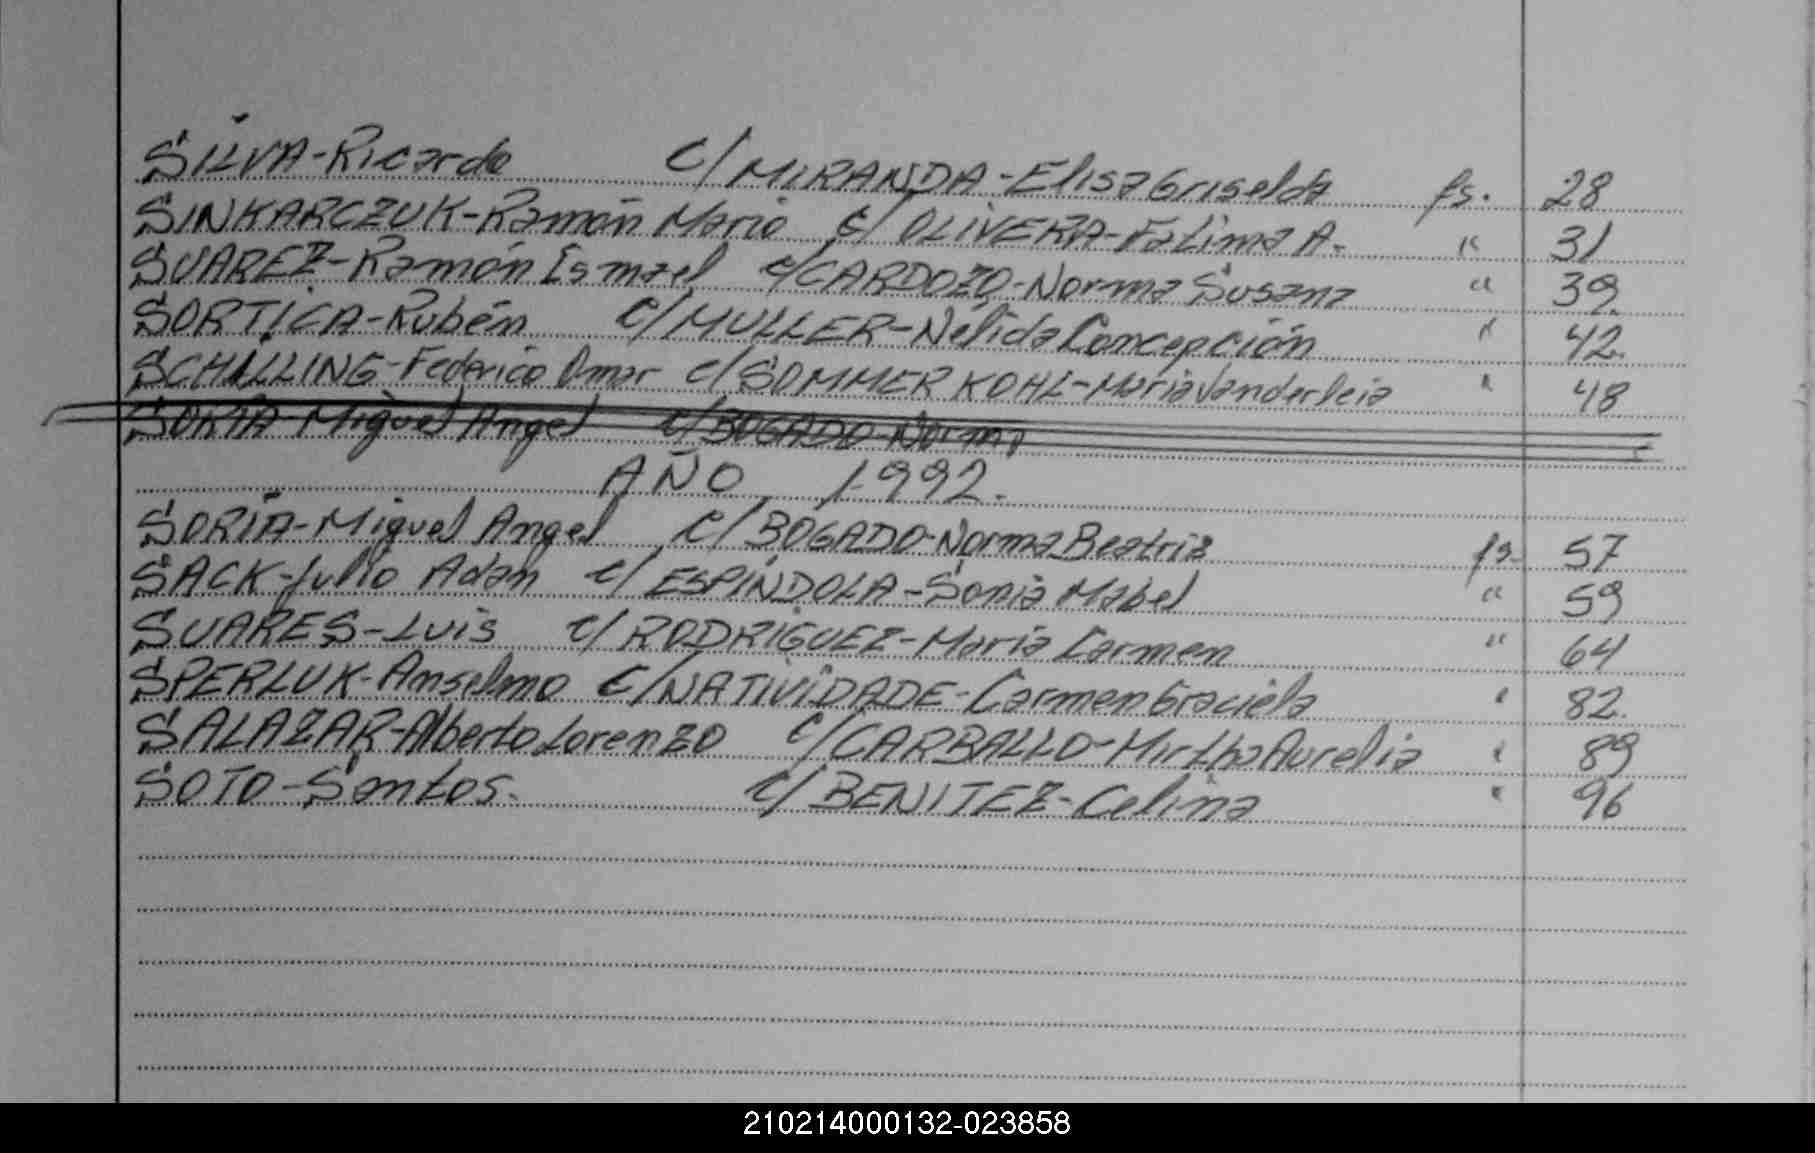 SILVA-Ricardo c/ MIRANDA-Elisa Griselda fs. 28
SINKARCZUK-Ramón Mario c/ OLIVERA-Fatima A. " 31
SUAREZ-Ramón Ismael c/ CARDOZO-Norma Susana " 39
SORTICA-Rubén c/ MULLER-Nélida Concepción " 42
SCHILLING-Federico Omar c/ SOMMER KOHL-Maria Vanderleia " 48
SORIA-Miguel Angel c/ BOGADO-Norma
AÑO 1992.
SORIA-Miguel Angel c/ BOGADO-Norma Beatriz fs. 57
SACK-Julio Adan c/ ESPINDOLA-Sonia Mabel " 59
SUARES-Luis c/ RODRIGUEZ-Maria Carmen " 64
SPERLUK-Anselmo c/ NATIVIDADE-Carmen Graciela " 82
SALAZAR-Alberto Lorenzo c/ CARBALLO-Mirtha Aurelia " 89
SOTO-Santos. c/ BENITEZ-Celina " 96
210214000132-023858